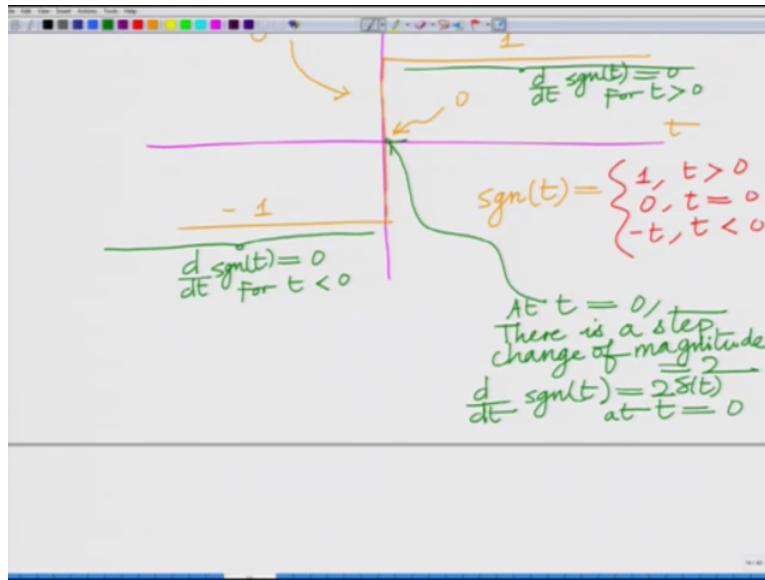 1
d/dt sgn(t) = 0
For t > 0
0
t
sgn(t) = { 1, t > 0
0, t = 0
-t, t < 0
- 1
d/dt sgn(t) = 0
For t < 0
At t = 0,
There is a step
change of magnitude
= 2
d/dt sgn(t) = 2δ(t)
at t = 0